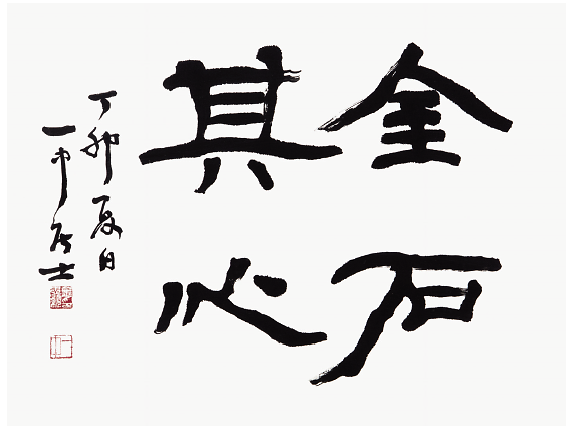 金石
其心
丁卯夏日
一中居士